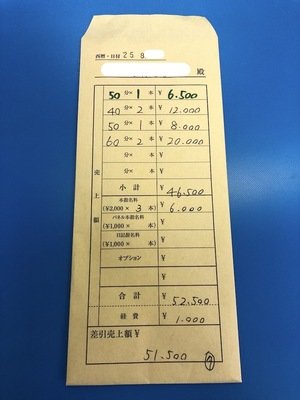 西暦・日付 25.8
殿
50分× 1 本 ¥ 6.500
40分× 2 本 ¥ 12.000
50分× 1 本 ¥ 8.000
60分× 2 本 ¥ 20.000
分× 本 ¥
分× 本 ¥
売上額
小計 ¥ 46.500
本指名料 (¥2,000× 3 本) ¥ 6.000
パネル本指名料 (¥1,000× 本) ¥
日記指名料 (¥1,000× 本) ¥
オプション ¥
¥
合計 ¥ 52,500
経費 ¥ 1.000
差引売上額 ¥
51.500